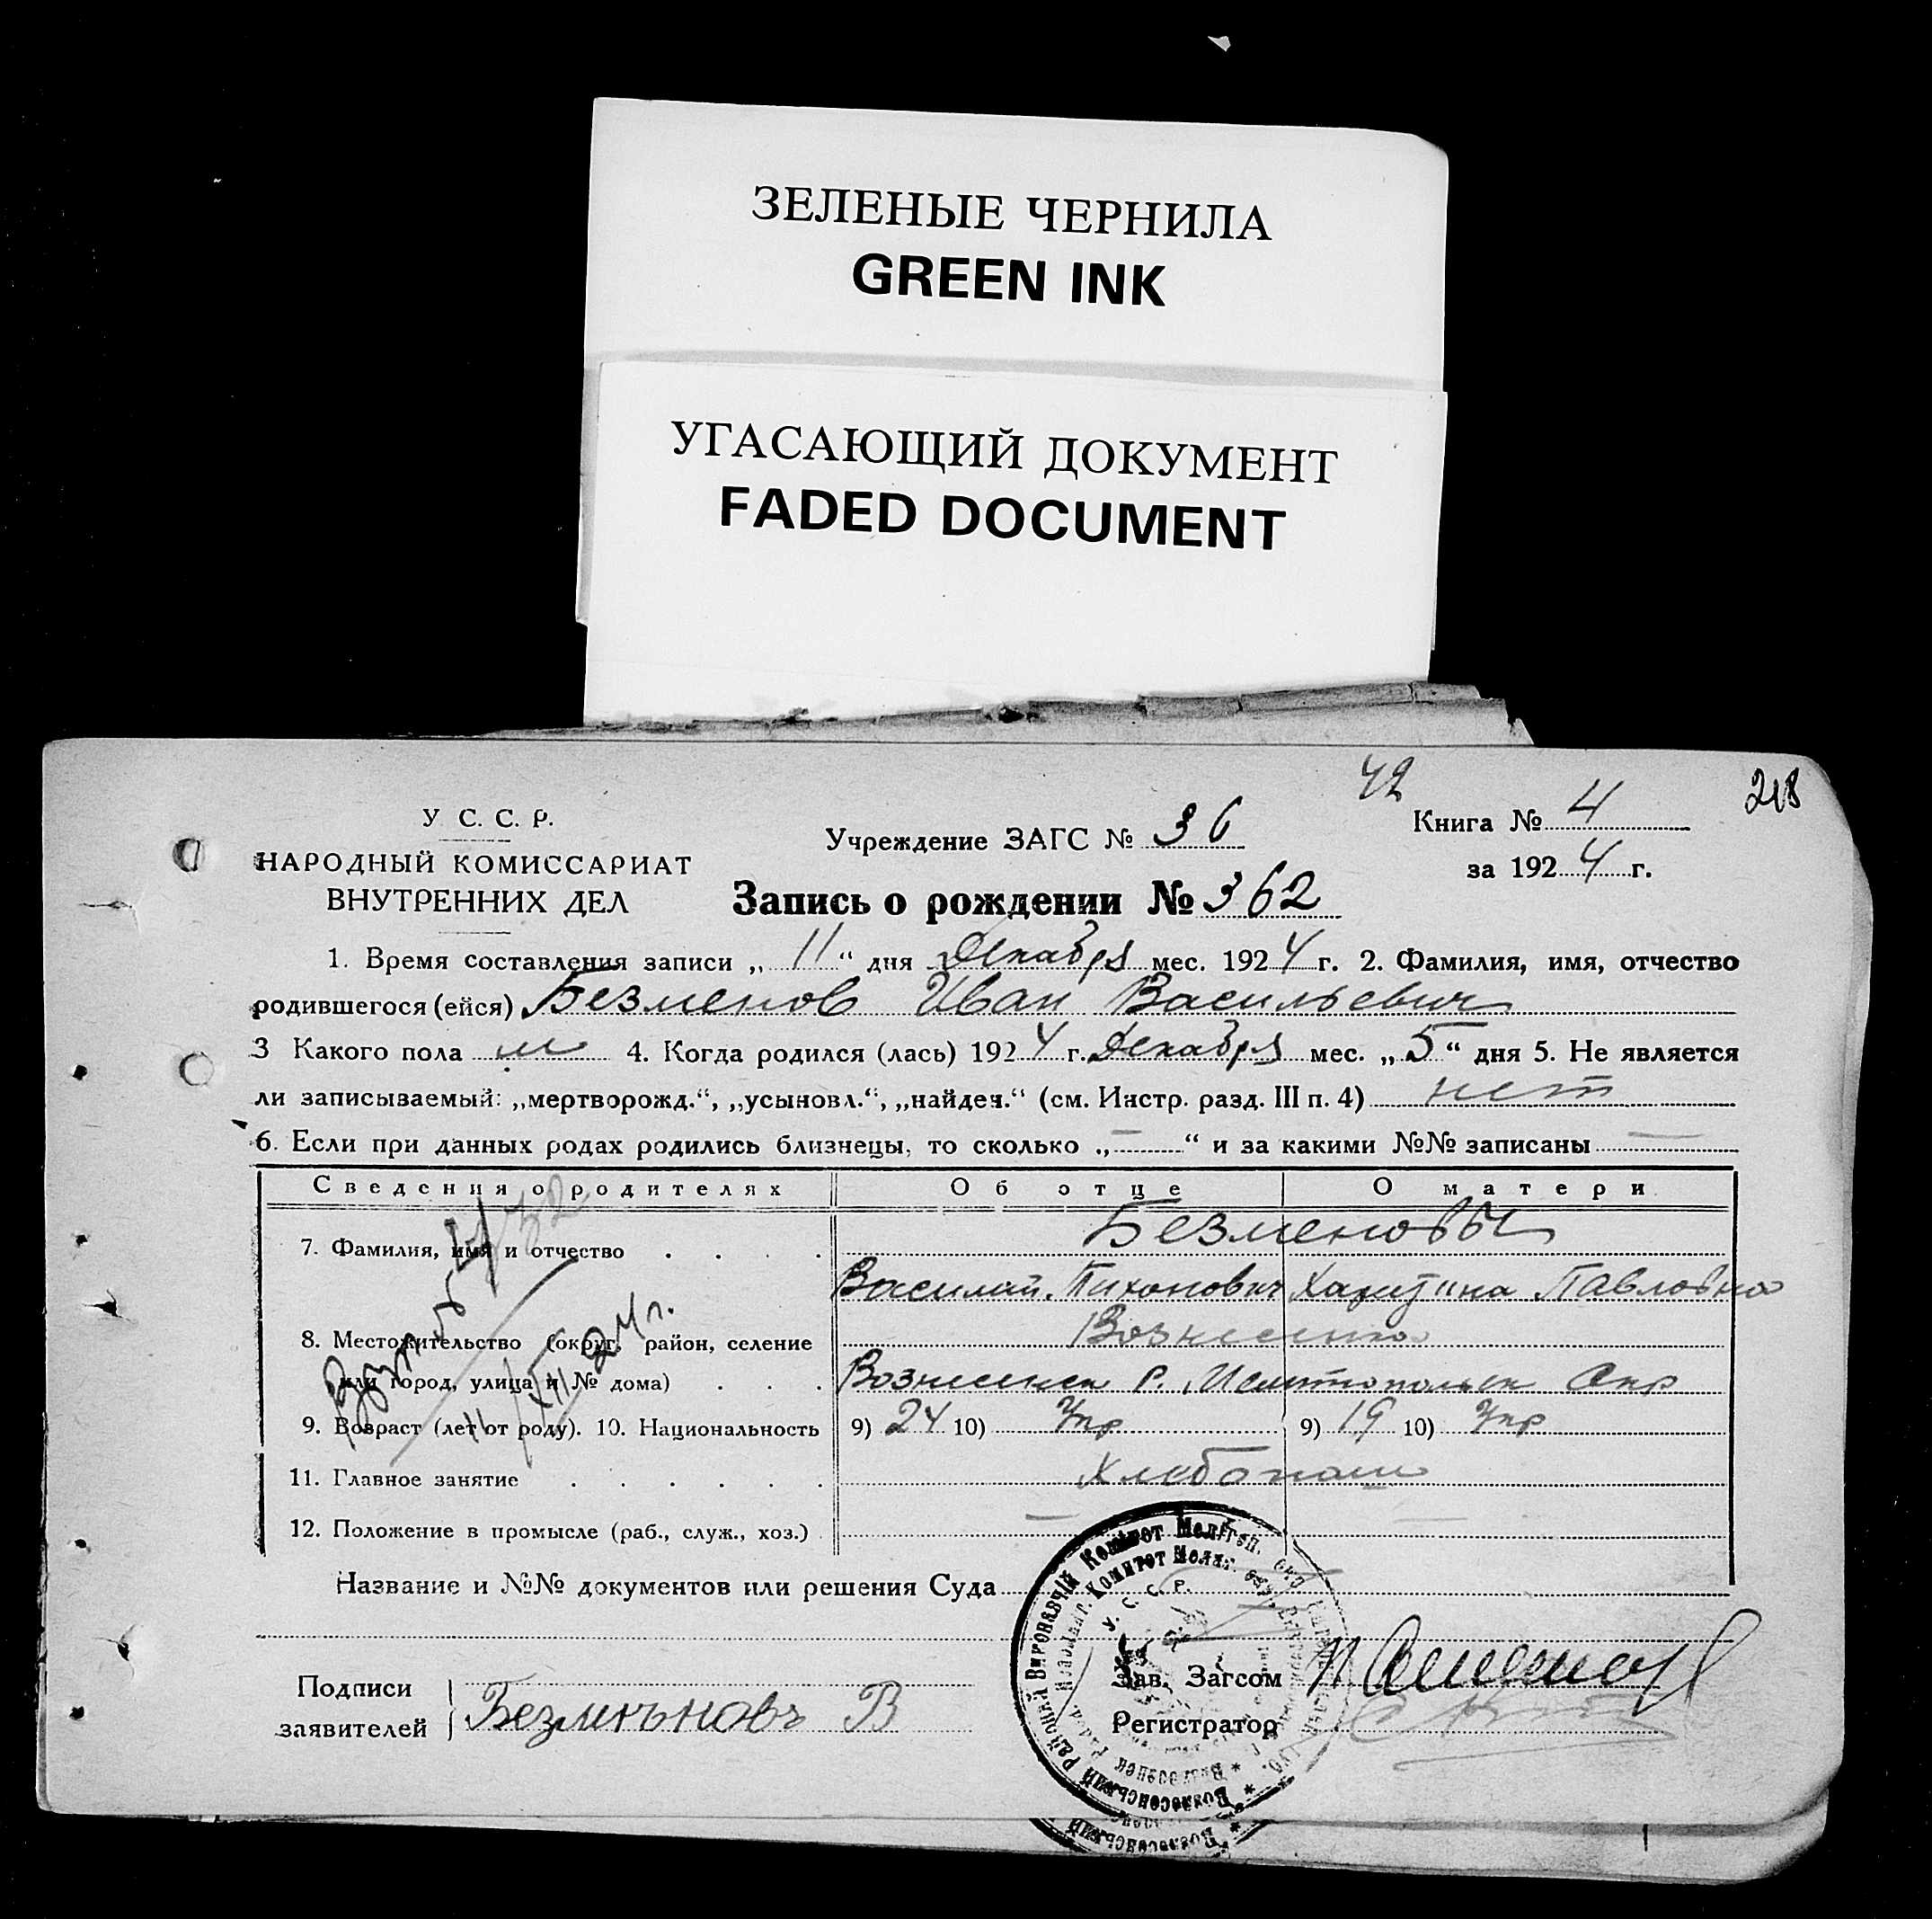 ЗЕЛЕНЫЕ ЧЕРНИЛА
GREEN INK
УГАСАЮЩИЙ ДОКУМЕНТ
FADED DOCUMENT
42
218
У С. С. Р.
НАРОДНЫЙ КОМИССАРИАТ
ВНУТРЕННИХ ДЕЛ
Учреждение ЗАГС № 36
Книга № 4
за 1924 г.
Запись о рождении № 362
1. Время составления записи „ 11 “ дня Декабря мес. 1924 г. 2. Фамилия, имя, отчество
родившегося (ейся) Безменов Иван Васильевич
3 Какого пола м 4. Когда родился (лась) 1924 г. Декабря мес. „ 5 “ дня 5. Не является
ли записываемый: „мертворожд.“, „усыновл.“, „найден.“ (см. Инстр. разд. III п. 4) нет
6. Если при данных родах родились близнецы, то сколько „ — “ и за какими №№ записаны —
Сведения о родителях Об отце О матери
Безменовы
7. Фамилия, имя и отчество . . . .
Василий Тихонович Харитина Павловна
8. Местожительство (округ, район, селение
или город, улица и № дома) . . .
Вознесенка
Вознесенск р. Мелитопольск Окр
9. Возраст (лет от роду). 10. Национальность 9) 24 10) Укр 9) 19 10) Укр
11. Главное занятие . . . . . . Хлебопаш
12. Положение в промысле (раб., служ., хоз.) —
Название и №№ документов или решения Суда
Подписи
заявителей
Безменовъ В
Зав. Загсом
Регистратор
У. С. С. Р.